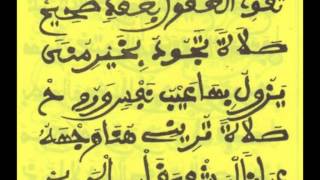 تقود العقول بعقد صحيح
صلاة تجود بخير معنى
يزول بها عيب نفس وروح
صلاة تريك هنا وجهه